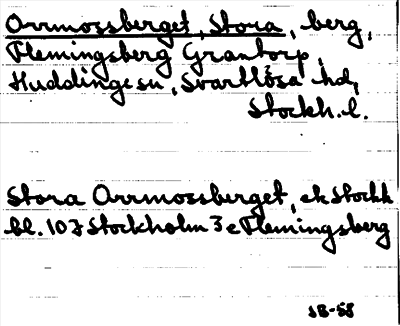 Orrmossberget, Stora, berg,
Flemingsberg Grantorp,
Huddinge sn, Svartlösa hd,
Stockh. l.
Stora Orrmossberget, ek Stockh
bl. 107 Stockholm 3 c Flemingsberg
JB-58